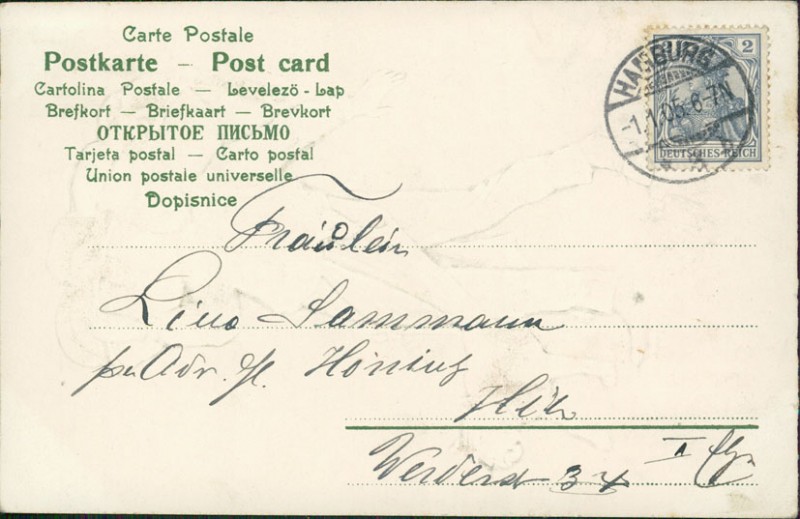 Carte Postale
Postkarte — Post card
Cartolina Postale — Levelező-Lap
Brefkort — Briefkaart — Brevkort
ОТКРЫТОЕ ПИСЬМО
Tarjeta postal — Carto postal
Union postale universelle
Dopisnice
2
HAMBURG
-1.1.05. 6-7N
DEUTSCHES REICH
Fräulein
Sammann
pr. Adr.
Hier
Werderstr 34 II